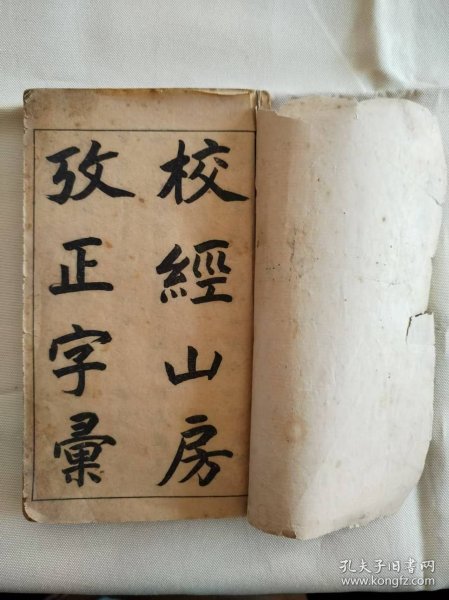 校經山房
攷正字彙
孔夫子旧书网
www.kongfz.com